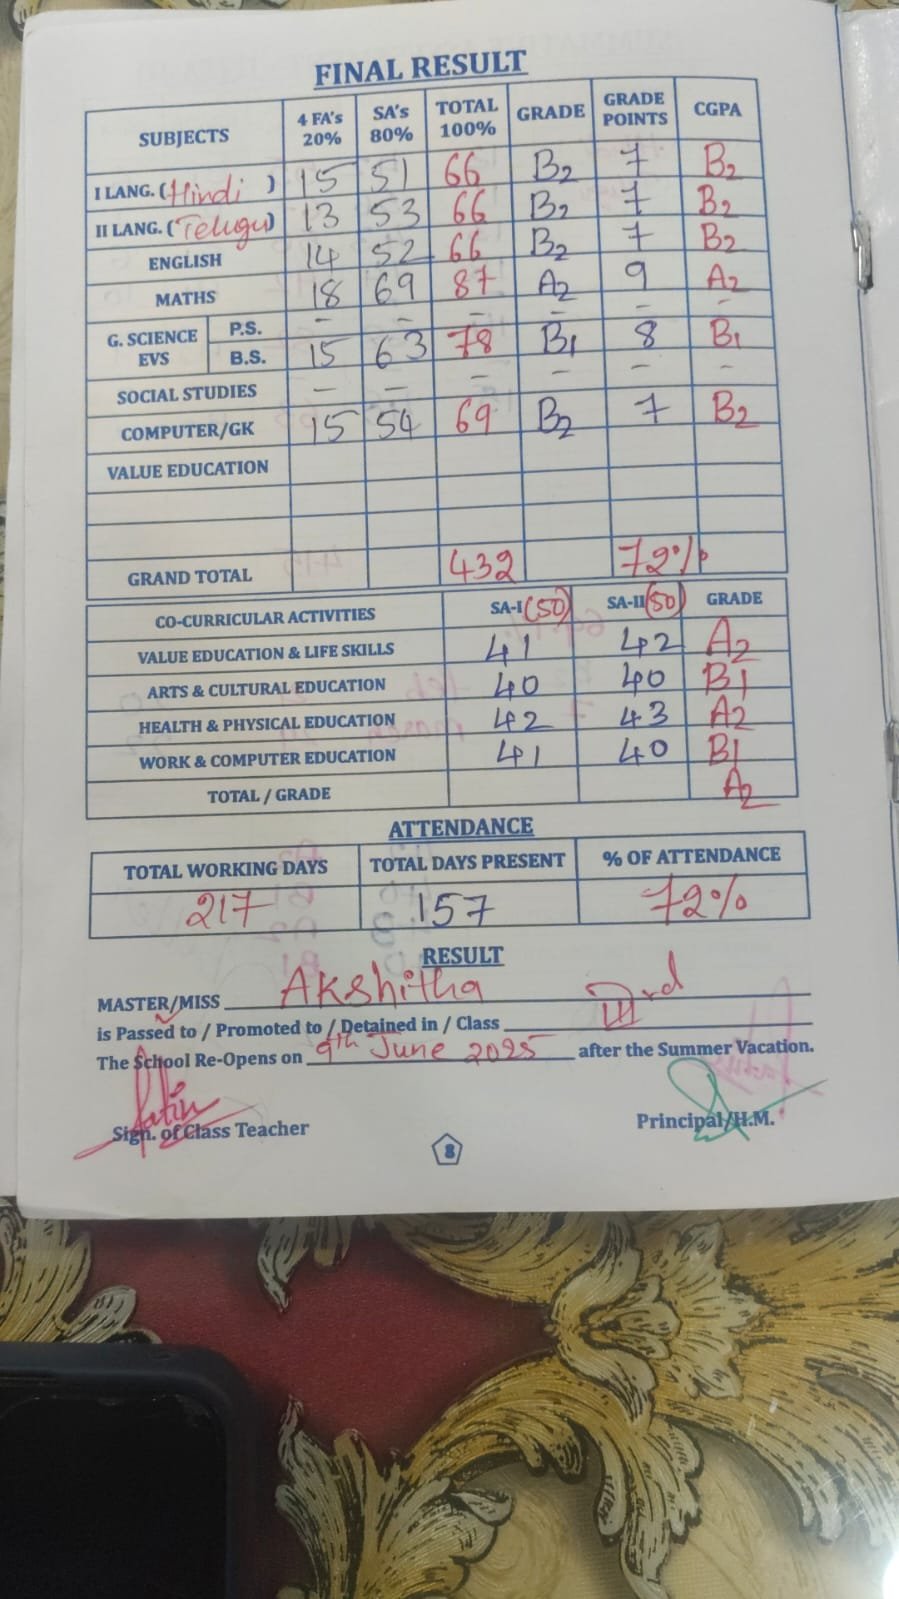 FINAL RESULT
SUBJECTS 4 FA's 20% SA's 80% TOTAL 100% GRADE GRADE POINTS CGPA
I LANG. (Hindi) 15 51 66 B2 7 B2
II LANG. (Telugu) 13 53 66 B2 7 B2
ENGLISH 14 52 66 B2 7 B2
MATHS 18 69 87 A2 9 A2
G. SCIENCE EVS P.S. - - - - - -
B.S. 15 63 78 B1 8 B1
SOCIAL STUDIES - - - - - -
COMPUTER/GK 15 54 69 B2 7 B2
VALUE EDUCATION
GRAND TOTAL 432 72%
CO-CURRICULAR ACTIVITIES SA-I (50) SA-II (50) GRADE
VALUE EDUCATION & LIFE SKILLS 41 42 A2
ARTS & CULTURAL EDUCATION 40 40 B1
HEALTH & PHYSICAL EDUCATION 42 43 A2
WORK & COMPUTER EDUCATION 41 40 B1
TOTAL / GRADE A2
ATTENDANCE
TOTAL WORKING DAYS TOTAL DAYS PRESENT % OF ATTENDANCE
217 157 72%
RESULT
MASTER/MISS Akshitha
is Passed to / Promoted to / Detained in / Class IIIrd
The School Re-Opens on 9th June 2025 after the Summer Vacation.
Sign. of Class Teacher Principal/H.M.
8